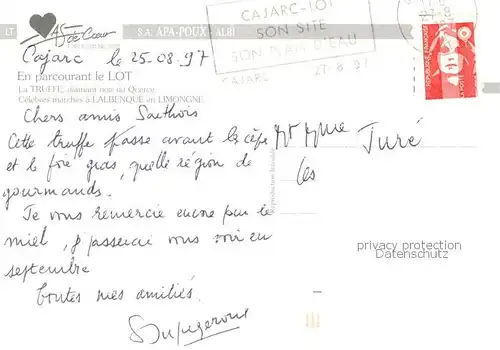 LT
AS de Cœur
S.A. APA-POUX - ALBI
CAJARC-LOT
SON SITE
SON PLAN D'EAU
CAJARC 27-8-97
27-8
Cajarc le 25.08.97
En parcourant le LOT
La TRUFFE, diamant noir du Quercy
Célèbres marchés à LALBENQUE et LIMOGNE
Chers amis
Cette truffe passe avant le cèpe
et le foie gras, quelle région de
gourmands.
Je vous remercie encore pour le
miel, je passerai vous voir en
septembre
Toutes mes amitiés.
Mr Mme Juré
Les
Reproduction interdite
privacy protection
Datenschutz